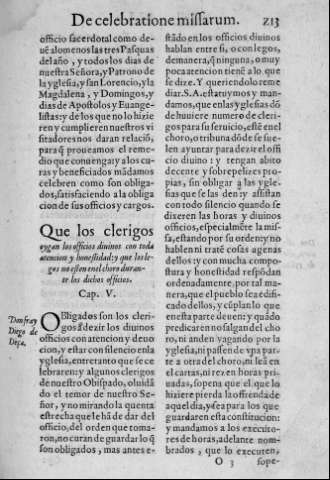 De celebratione missarum. 213
officio sacerdotal como de-
ue alomenos las tres Pasquas
del año, y todos los dias de
nuestra Señora, y Patrono de
la yglesia, y san Lorencio, y la
Magdalena, y Domingos, y
dias de Apostolos y Euange-
listas: y de los que no lo hizie
ren y cumplieren nuestros vi
sitadores nos daran relació,
para q̃ proueamos el reme-
dio que conuenga: y a los cu-
ras y beneficiados mãdamos
celebren como son obliga-
dos, satisfaciendo a la obliga
cion de sus officios y cargos.
Que los clerigos
oygan los officios diuinos con toda
atencion y honestidad: y que los le-
gos no esten en el choro duran-
te los dichos officios.
Cap. V.
Don fray
Diego de
Deça.
OBligados son los cleri-
gos a dezir los diuinos
officios con atencion y deuo
cion, y estar con silencio en la
yglesia, entretanto que se ce
lebraren: y algunos clerigos
de nuestro Obispado, oluidã
do el temor de nuestro Se-
ñor, y no mirando la quenta
estrecha que le hã de dar del
officio, del orden que toma-
ron, no curan de guardar lo q̃
son obligados, mas antes e-
stãdo en los officios diuinos
hablan entre si, o con legos,
de manera, q̃ ninguna, o muy
poca atencion tienẽ a lo que
se dize. Y queriendolo reme
diar. S. A. estatuymos y man-
damos, que en las yglesias dõ
de huuiere numero de cleri-
gos para su seruicio, estẽ en el
choro, o tribuna dõde se sue-
len ayuntar para dezir el offi
cio diuino: y tengan abito
decente y sobrepelizes pro-
pias, sin obligar a las ygle-
sias que se las den: y assistan
con todo silencio quando se
dixeren las horas y diuinos
officios, especialmẽte la mis-
sa, estando por su orden: y no
hablen ni tratẽ cosas agenas
dellos: y con mucha compo-
stura y honestidad respõdan
ordenadamente, por tal ma-
nera, que el pueblo sea edifi-
cado dellos, y cũplan lo que
en esta parte deuen: y quãdo
predicaren no salgan del cho
ro, ni anden vagando por la
yglesia, ni passen de vna par-
te a otra del choro, ni leã en
el cartas, ni rezen horas pri-
uadas, so pena que el que lo
hiziere pierda la ofrenda de
aquel dia, y sea para los que
guardaren esta constitucion:
y mandamos a los executo-
res de horas, adelante nom-
brados, que lo executen,
O 3 sope-